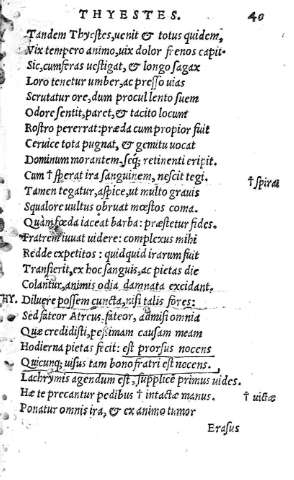 THYESTES. 40
Tandem Thyestes, uenit & totus quidem,
Vix tempero animo, uix dolor frenos capit.
Sic, cum feras uestigat, & longo sagax
Loro tenetur umber, ac presso uias
Scrutatur ore, dum procul lento suem
Odore sentit, paret, & tacito locum
Rostro pererrat: præda cum propior fuit
Ceruice tota pugnat, & gemitu uocat
Dominum morantem. seq; retinenti eripit.
Cum † sperat ira sanguinem, nescit tegi. † spirat
Tamen tegatur, aspice, ut multo grauis
Squalore uultus obruat mœstos coma.
Quàm fœda iaceat barba: præstetur fides.
Fratrem iuuat uidere: complexus mihi
Redde expetitos: quidquid irarum fuit
Transierit, ex hoc sanguis, ac pietas die
Colantur, animis odia damnata excidant.
HY. Diluere possem cuncta, nisi talis fores:
Sed fateor Atreus. fateor, admisi omnia
Quæ credidisti, pessimam causam meam
Hodierna pietas fecit: est prorsus nocens
Quicunq; uisus tam bono fratri est nocens.
Lachrymis agendum est, supplicem primus uides.
Hæ te precantur pedibus † intactæ manus. † uictæ
Ponatur omnis ira, & ex animo tumor
Erasus